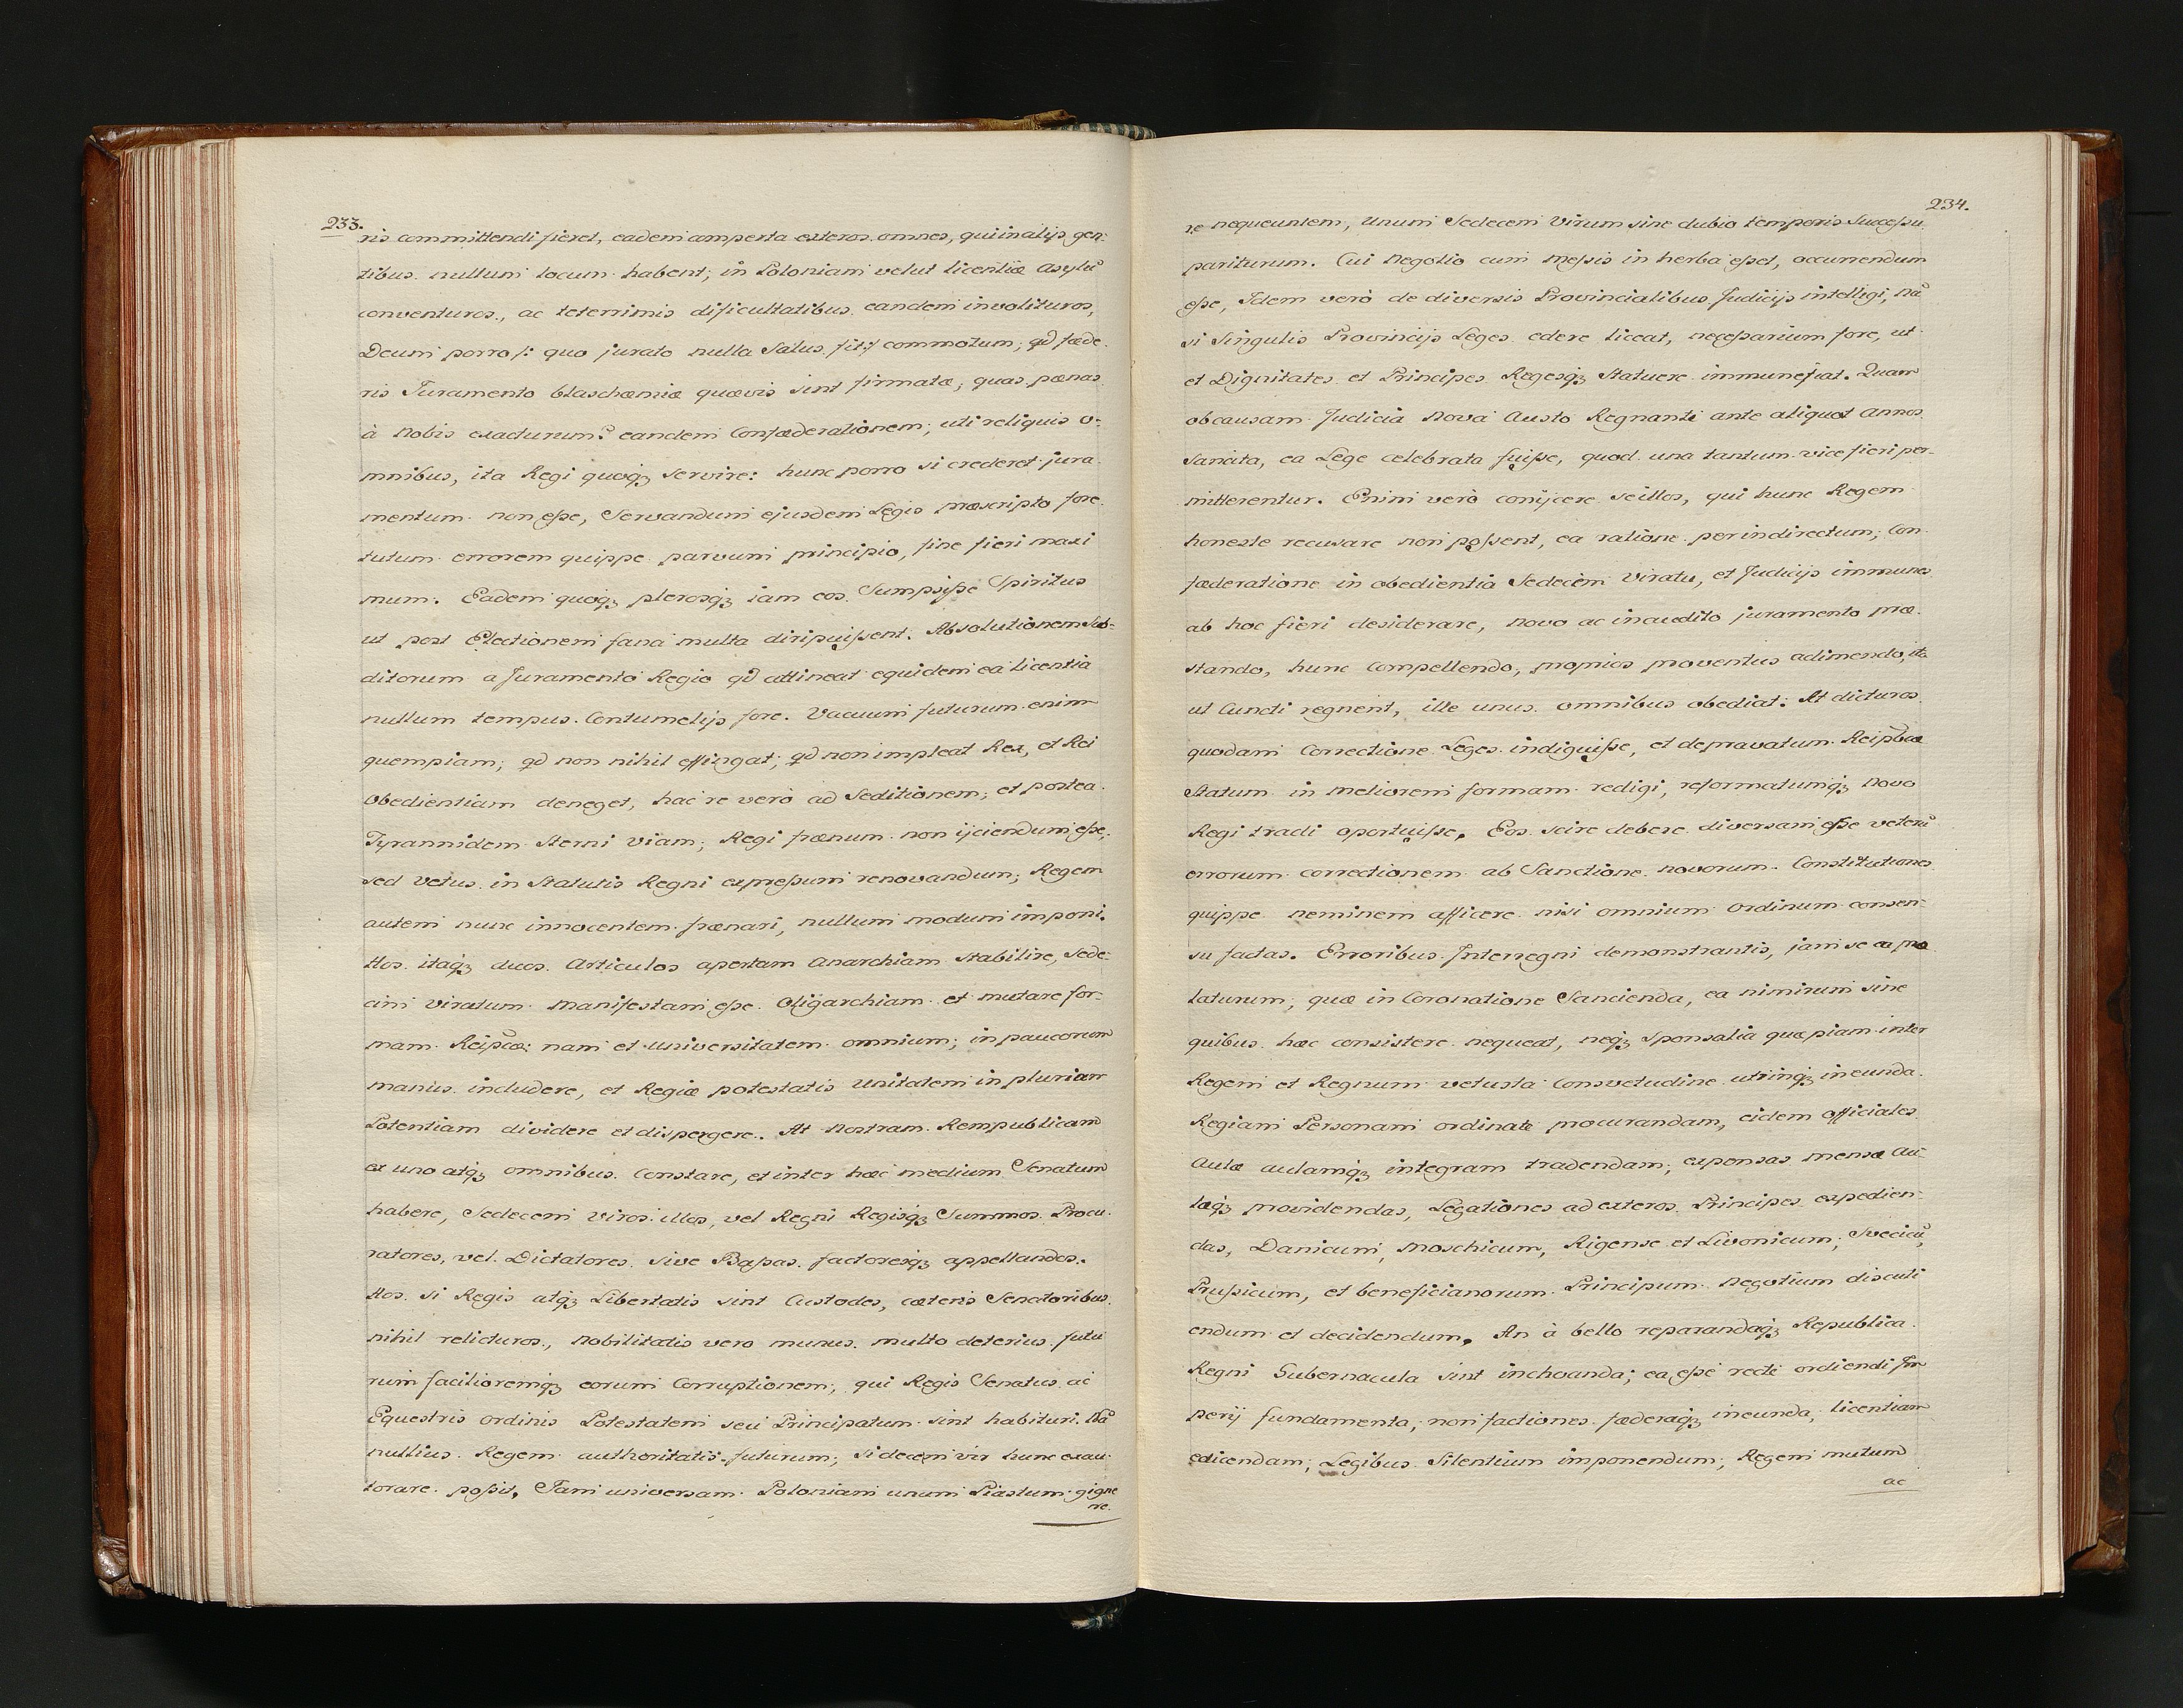 233.
ris committendi fieret, eadem comperta exteros omnes, qui in alijs gen:
tibus nullum locum habent; in Poloniam velut licentiæ asylū
conventuros, ac teterrimis dificultatibus eandem involituros,
Deum porro /: quo jurato nulla Salus sit :/ commotum; qd fæde-
ris Juramento blaschæmiæ quævis sint firmatæ; quas pænas
à Nobis exacturum? eandem Confæderationem; uti reliquis o-
mnibus, ita Regi quoqz servire: hunc porro si crederet jura-
mentum non eſse, Servandum ejusdem Legis præscripto fore
tutum errorem quippe parvum principio, fine fieri maxi
mum. Eadem quoqz plerosqz iam eos Sumpsiſse Spiritus
ut post Electionem fana multa diripuiſsent. Absolutionem Sub-
ditorum a Juramento Regio qd attineat equidem ea licentia
nullum tempus Contumelijs fore. Vacuum futurum enim
quempiam; qd non nihil effingat; qd non impleat Rex, et Rei
obedientiam deneget, hac re verò ad Seditionem; et postea
Tyrannidem Sterni viam; Regi frænum non ijciendum eſse,
sed vetus in Statutis Regni expreſsum renovandum; Regem
autem nunc innocentem frænari, nullum modum imponi.
Hos itaqz duos Articulos apertam Anarchiam stabilire, Sede-
cim viratum Manifestam eſse Oligarchiam et mutare for-
mam Reipcæ: nam et universitatem omnium; in paucorum
manus includere, et Regiæ potestatis Unitatem in plurium
Potentiam dividere et dispergere. At Nostram Rempublicam
ex uno atqz omnibus Constare, et inter hæc medium Senatum
habere, Sedecem viros illos, vel Regni Regisqz Summos Procu-
ratores, vel Dictatores sive Baſsas factoresqz appellandos.
Hos si Regis atqz Libertatis sint Custodes, cæteris Senatoribus
nihil relicturos, Nobilitatis vero munus multo deterius futu
rum facilioremqz eorum Corruptionem; qui Regis Senatus ac
Equestris ordinis Potestatem seu Principatum sint habituri. Nā
nullius Regem authoritatis futurum; si decem vir hunc exau-
torare poſsit, Tam universam Poloniam unum Piastum gigne
re.
234.
re nequeuntem, Unum Sedecem Virum sine dubio temporis Succeſsu
pariturum. Cui Negotio cum meſsis in herba eſset, occurrendum
eſse, Idem verò de diversis Provincialibus Judicijs intelligi, Nā
si Singulis Provincijs Leges edere liceat, neceſsarium fore, ut
et Dignitates et Principes Regesqz Statuere immunefiat. Quam
ob causam Judicia Nova Austo Regnanti ante aliquot annos
sancita, ea Lege celebrata fuiſse, quod una tantum vice fieri per-
mitterentur. Enim verò conijcere se illos, qui hunc Regem
honeste recusare non poſsent, ea ratione per indirectum; Con-
fæderatione in obedientia Sedecim Viratu, et Judicijs immunes
ab hoc fieri desiderare, novo ac inaudito juramento præ-
stando, hunc compellendo, proprios proventus adimendo, ita
ut Cuncti regnent, ille unus omnibus obediat: At dicturos
quodam Correctione Leges indiguiſse, et depravatum Reipbcæ
Statum in meliorem formam redigi, reformatumqz Novo
Regi tradi oportuiſse, Eos scire debere diversam eſse veterū
errorum correctionem ab Sanctione novorum. Constitutiones
quippe neminem afficere nisi omnium Ordinum consen-
su factas. Erroribus Interregni demonstrantis, jam se ea pro
laturum, quæ in Coronatione Sancienda, ea nimirum sine
quibus hæc consistere nequeat, neqz Sponsalia quæpiam inter
Regem et Regnum vetusta Consvetudine utrinqz ineunda.
Regiam Personam ordinate procurandam, eidem Officiales
Aulæ aulamqz integram tradendam; expensas mensæ Au-
læqz providendas, Legationes ad exteros Principes expedien-
das, Danicum, Moschicum, Rigense et Livonicum; Svecicū,
Pruſsicum, et beneficianorum Principum Negotium discuti
endum et decidendum, An à bello reparandaqz Republica
Regni Gubernacula sint inchoanda; ea eſse recte ordiendi Im
perij fundamenta; non factiones fæderaqz ineunda, licentiam
edicendam; Legibus Silentium imponendum; Regem mutum
ac